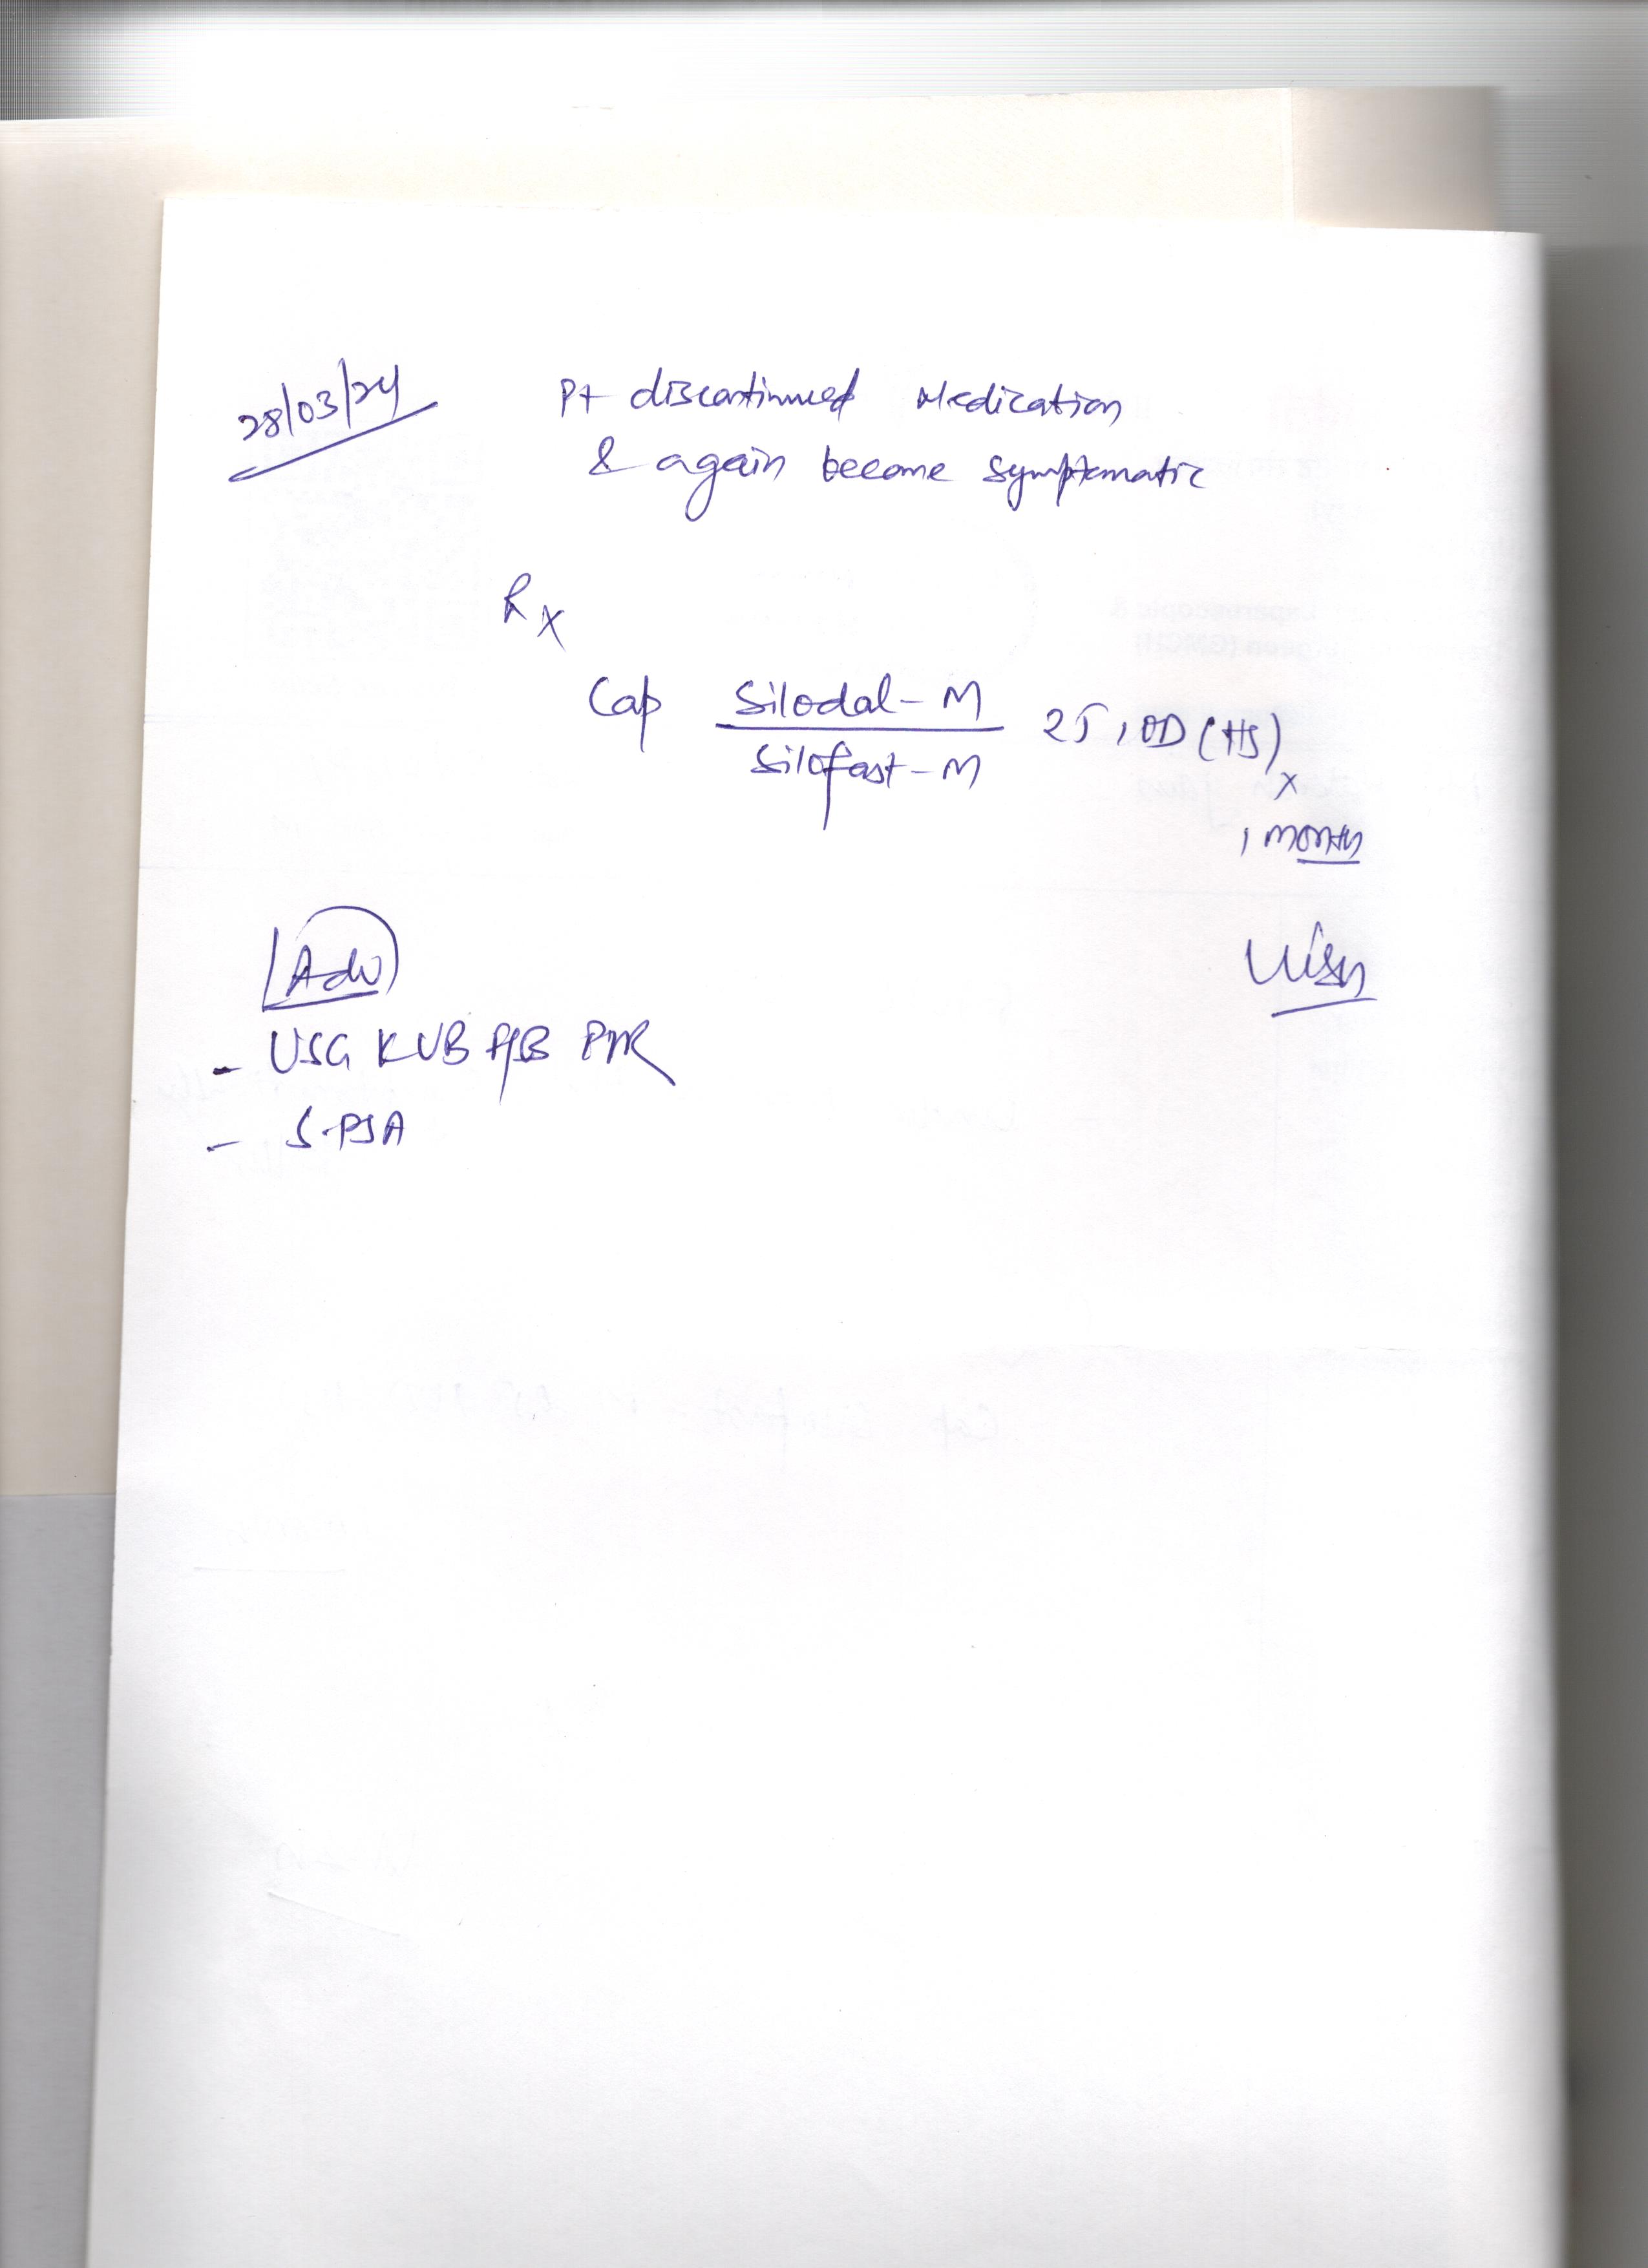 28/03/24
Pt discontinued Medication
& again become symptomatic
Rx
Cap Silodal-M 25, OD (HS)
Silofast-M
x
1 month
Adv
- USG KUB PVR
- S.PSA